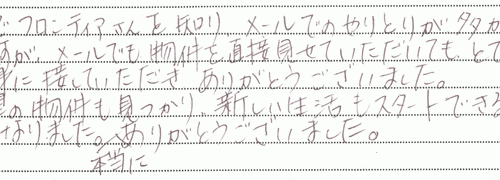 フロンティアさんを知り メールでのやりとりが多か
が、メールでも物件を直接見せていただいても、とて
に接していただき ありがとうございました。
の物件も見つかり、新しい生活もスタートできる
なりました。ありがとうございました。
本当に